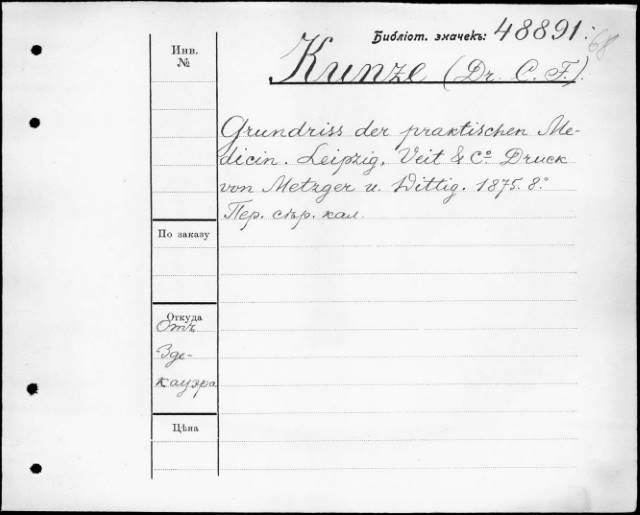 Библіот. значекъ: 48891: 68
Инв.
№
Kunze (Dr. C. F.).
Grundriss der praktischen Me-
dicin. Leipzig, Veit & Cº Druck
von Metzger u. Wittig. 1875. 8.º
Пер. сѣр. кал.
По заказу
Откуда
Отъ
Зде-
кауэра
Цѣна